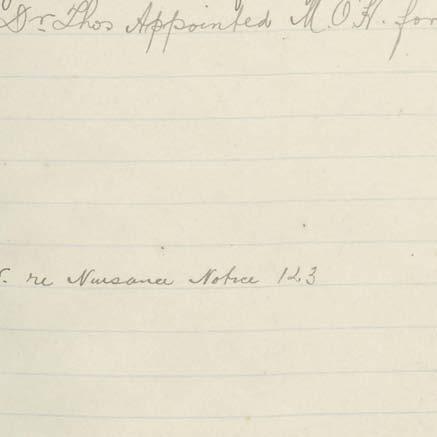 Dr Thos Appointed M.O.H. for
re Nuisance Notice 123